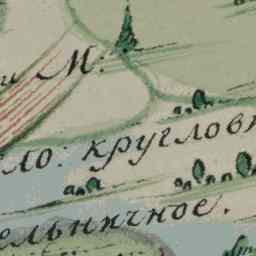 и М:
ло: кругловк
ельничное.